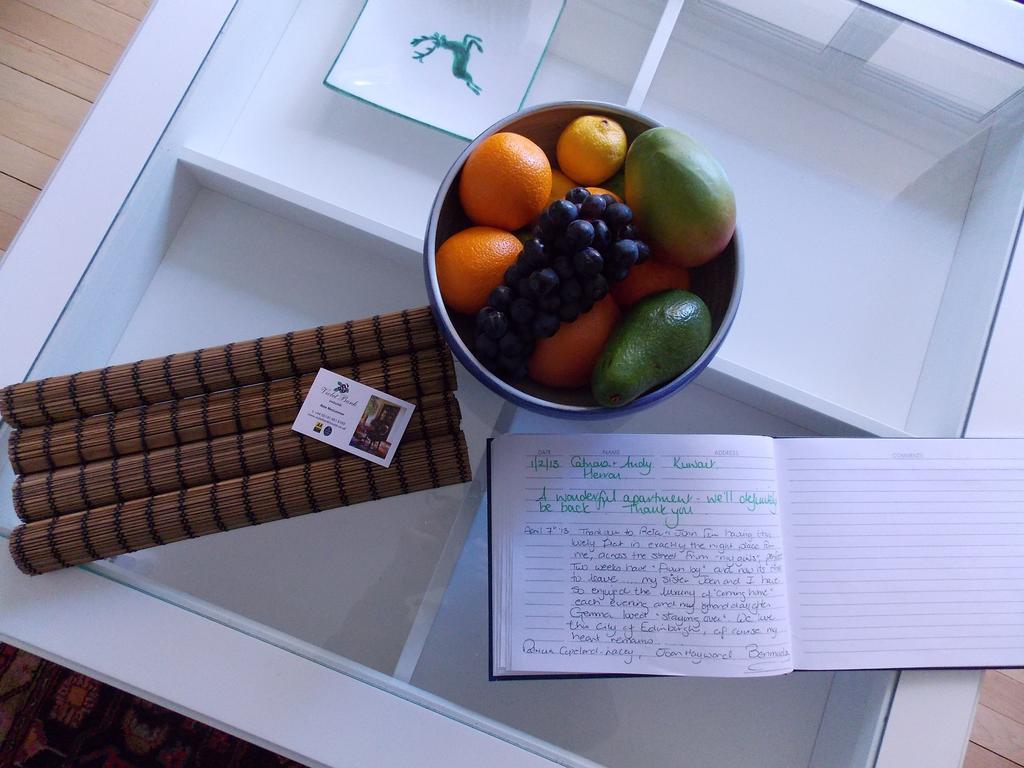 Violet Bank
DATE NAME ADDRESS
COMMENTS
1/2/13 Catriona + Andy Kuwait
Herron
A wonderful apartment - we'll definitely
be back, Thank you
April 7th '13 Thank you to Peter + Joan for having this
lovely flat in exactly the right place for
me, across the street from "my girls",
Two weeks have "flown by" and now its time
to leave ..... my sister Joan and I have
so enjoyed the luxury of "coming home"
each evening and my granddaughter
Gemma loved "staying over". We love
this City of Edinburgh, of course my
heart remains
Patricia Copeland-Lacey, Joan Hayward Bermuda